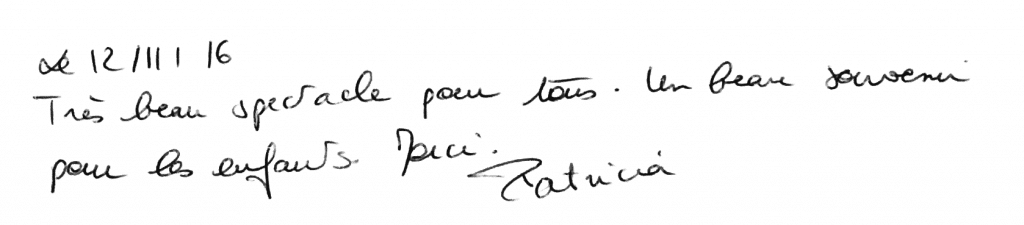 Le 12/11/16
Très beau spectacle pour tous. Un beau souvenir
pour les enfants. Merci.
Patricia